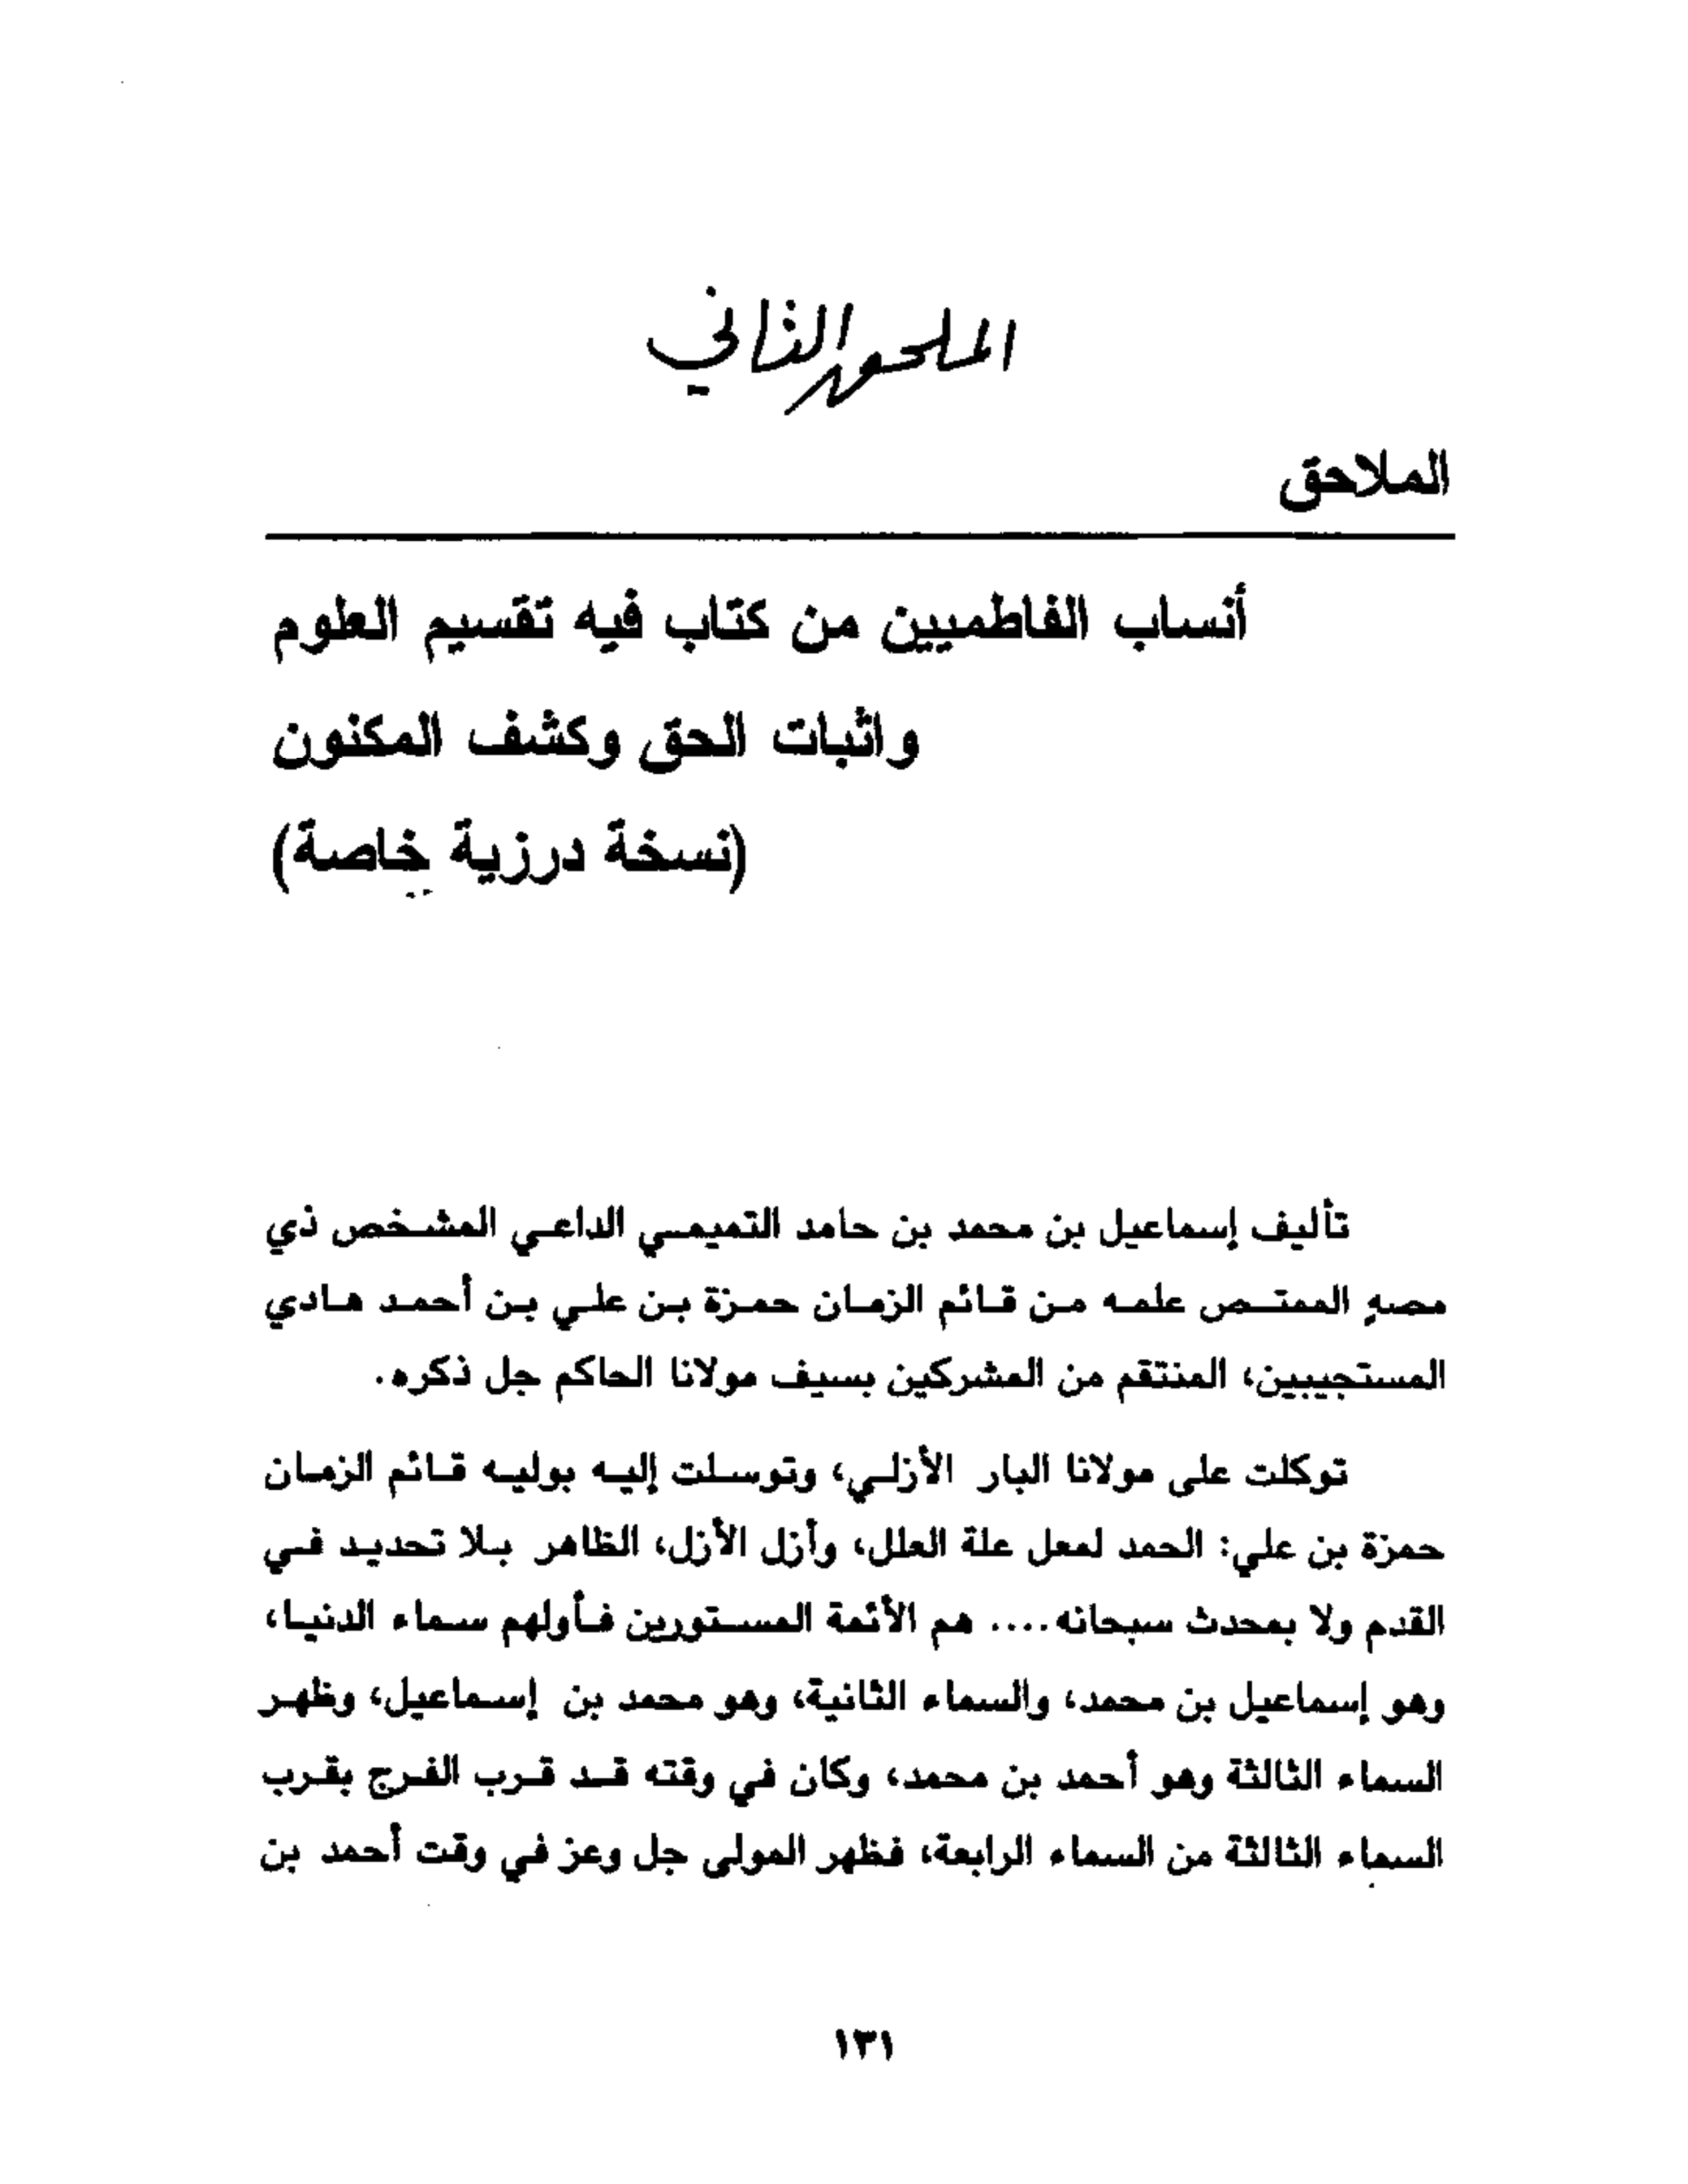 الملحق الثاني
الملاحق
أنساب الفاطميين من كتاب فيه تقسيم العلوم
واثبات الحق وكشف المكنون
(نسخة درزية خاصة)
تأليف إسماعيل بن محمد بن حامد التميمي الداعي المشخص ذي
مصهٍ الممتص علمه من قائم الزمان حمزة بن علي بن أحمد هادي
المستجيبين، المنتقم من المشركين بسيف مولانا الحاكم جل ذكره.
توكلت على مولانا البار الأزلي، وتوسلت إليه بوليه قائم الزمان
حمزة بن علي: الحمد لمعل علة العلل، وأزل الأزل، الظاهر بلا تحديد في
القدم ولا بمحدث سبحانه.... هم الأئمة المستورين فأولهم سماء الدنيا،
وهو إسماعيل بن محمد، والسماء الثانية، وهو محمد بن إسماعيل، وظهر
السماء الثالثة وهو أحمد بن محمد، وكان في وقته قد قرب الفرج بقرب
السماء الثالثة من السماء الرابعة، فظهر المولى جل وعز في وقت أحمد بن
١٣١